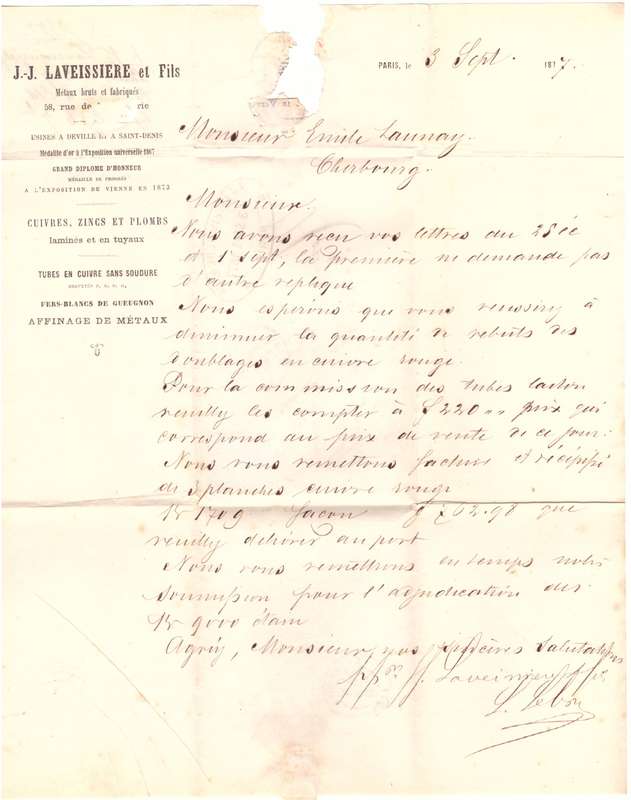 J.-J. LAVEISSIERE et Fils
Métaux bruts et fabriqués
58, rue de
USINES A DEVILLE ET A SAINT-DENIS
Médaille d'or à l'Exposition universelle 1867
GRAND DIPLOME D'HONNEUR
MÉDAILLE DE PROGRÈS
A L'EXPOSITION DE VIENNE EN 1873
CUIVRES, ZINCS ET PLOMBS
laminés et en tuyaux
TUBES EN CUIVRE SANS SOUDURE
BREVETÉS S. G. D. G.
FERS-BLANCS DE GUEUGNON
AFFINAGE DE MÉTAUX
PARIS, le 3 Sept. 1877.
Monsieur Emile Launay.
Cherbourg.
Monsieur,
Nous avons reçu vos lettres du 25 éc
et 1 sept, la première ne demande pas
d'autre replique
Nous espérons que vous reussirez à
diminuer la quantité de rebuts des
doublages en cuivre rouge.
Pour la commission des tubes laiton
veuillez les compter à f 220 " prix qui
correspond au prix de vente de ce jour.
Nous vous remettons facture et récépissé
de 3 planches cuivre rouge
K 1709 façon f 762.98 que
veuillez délivrer au port
Nous vous remettrons en temps notre
soumission pour l'adjudication des
K 9000 étain
Agréez, Monsieur, nos sincères salutations
ppon J. Laveissiere & fils